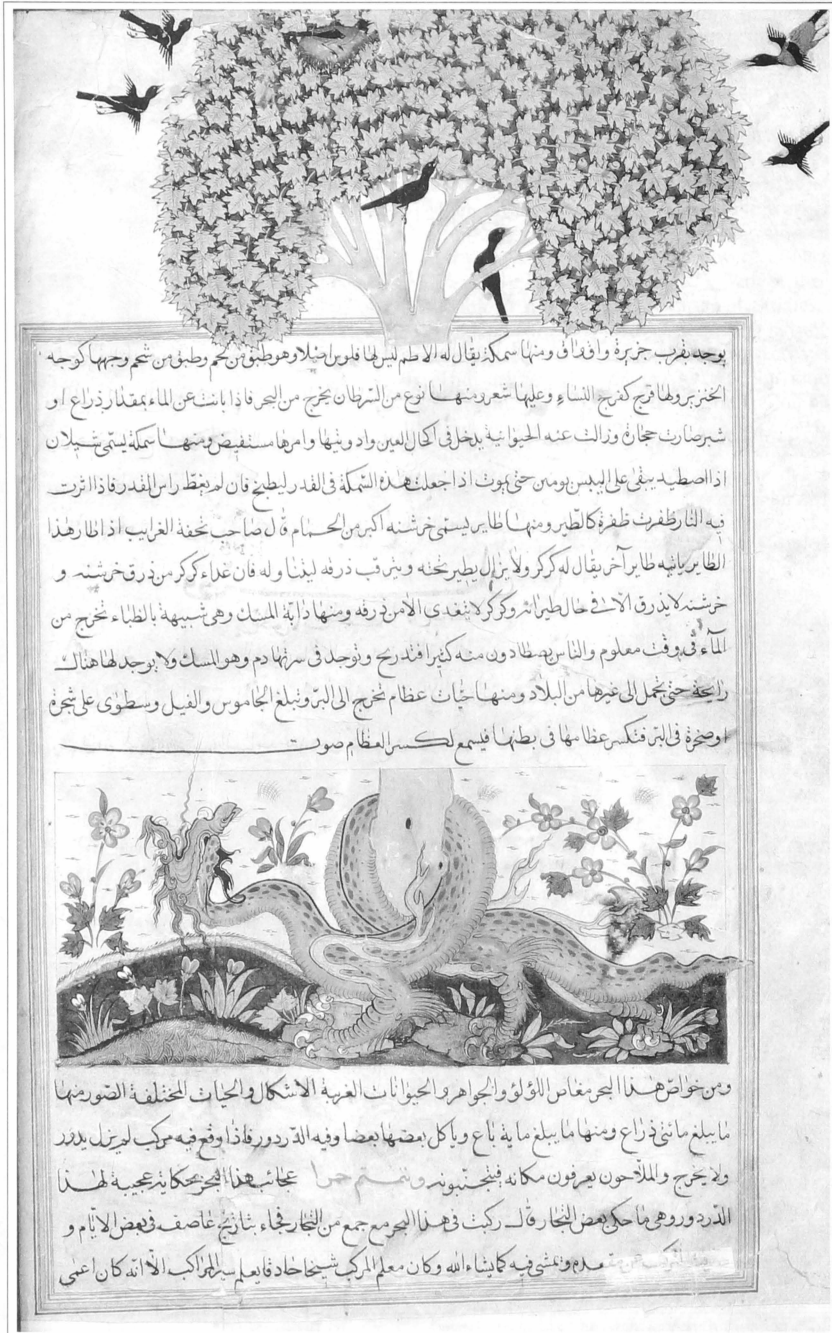 يوجد بقرب جزيرة واقواق ومنها سمكة يقال له الاطم ليس لها فلوس اصلا وهو طبق من لحم وطبق من شحم وجهها كوجه
الخنزير ولها فرج كفرج النساء وعليها شعر ومنها نوع من السرطان يخرج من البحر فاذا بانت عن الماء بمقدار ذراع او
شبر صارت حجارة وزالت عنه الحيوانية يدخل فى اكحال العين وادويتها وامرها مستفيض ومنها سمكة يسمى شيلان
اذا اصطيد يبقى على اليبس يومين حتى يموت اذا جعلت هذه السمكة فى القدر ليطبخ فان لم يغط راس القدر فاذا اثرت
فيه النار ظفرت ظفرة كالطير ومنها طاير يسمى خرشنه اكبر من الحمام قال صاحب تحفة الغرايب اذا طار هذا
الطاير ياتيه طاير آخر يقال له كركر ولا يزال يطير تحته ويترقب ذرقه ليقتات وله فان غداء كركر من ذرق خرشنه و
خرشنه لا يذرق الا فى حال طيرانه وكركر لا يتغدى الا من ذرقه ومنها دابة المسك وهى شبيهة بالظباء تخرج من
الماء فى وقت معلوم والناس يصطادون منه كثيرا فتذبح وتوجد فى سرتها دم وهو المسك ولا يوجد لها هناك
رايحة حتى تحمل الى غيرها من البلاد ومنها حيات عظام تخرج الى البر وتبلع الجاموس والفيل وسطوى على شجرة
او صخرة فى البر فتكسر عظامها فى بطنها فيسمع لكسر العظام صوت
ومن خواص هذا البحر مغاص اللؤلؤ والجواهر والحيوانات الغريبة الاشكال والحيات المختلفة الصور منها
ما يبلغ مائتى ذراع ومنها ما يبلغ ماية باع وياكل بعضها بعضا وفيه الدردور فاذا وقع فيه مركب لم يزل يدور
ولا يخرج والملاحون يعرفون مكانه فيتجنبونه عجائب هذا البحر بحكاية عجيبة لهذا
الدردور وهى ما حكى بعض التجار قال ركبت فى هذا البحر مع جمع من التجار فجاء بنا ريح عاصف فى بعض الايام و
ويمشى فيه كما يشاء الله وكان معلم المركب شيخا حاذقا يعلم سير المراكب الا انه كان اعمى